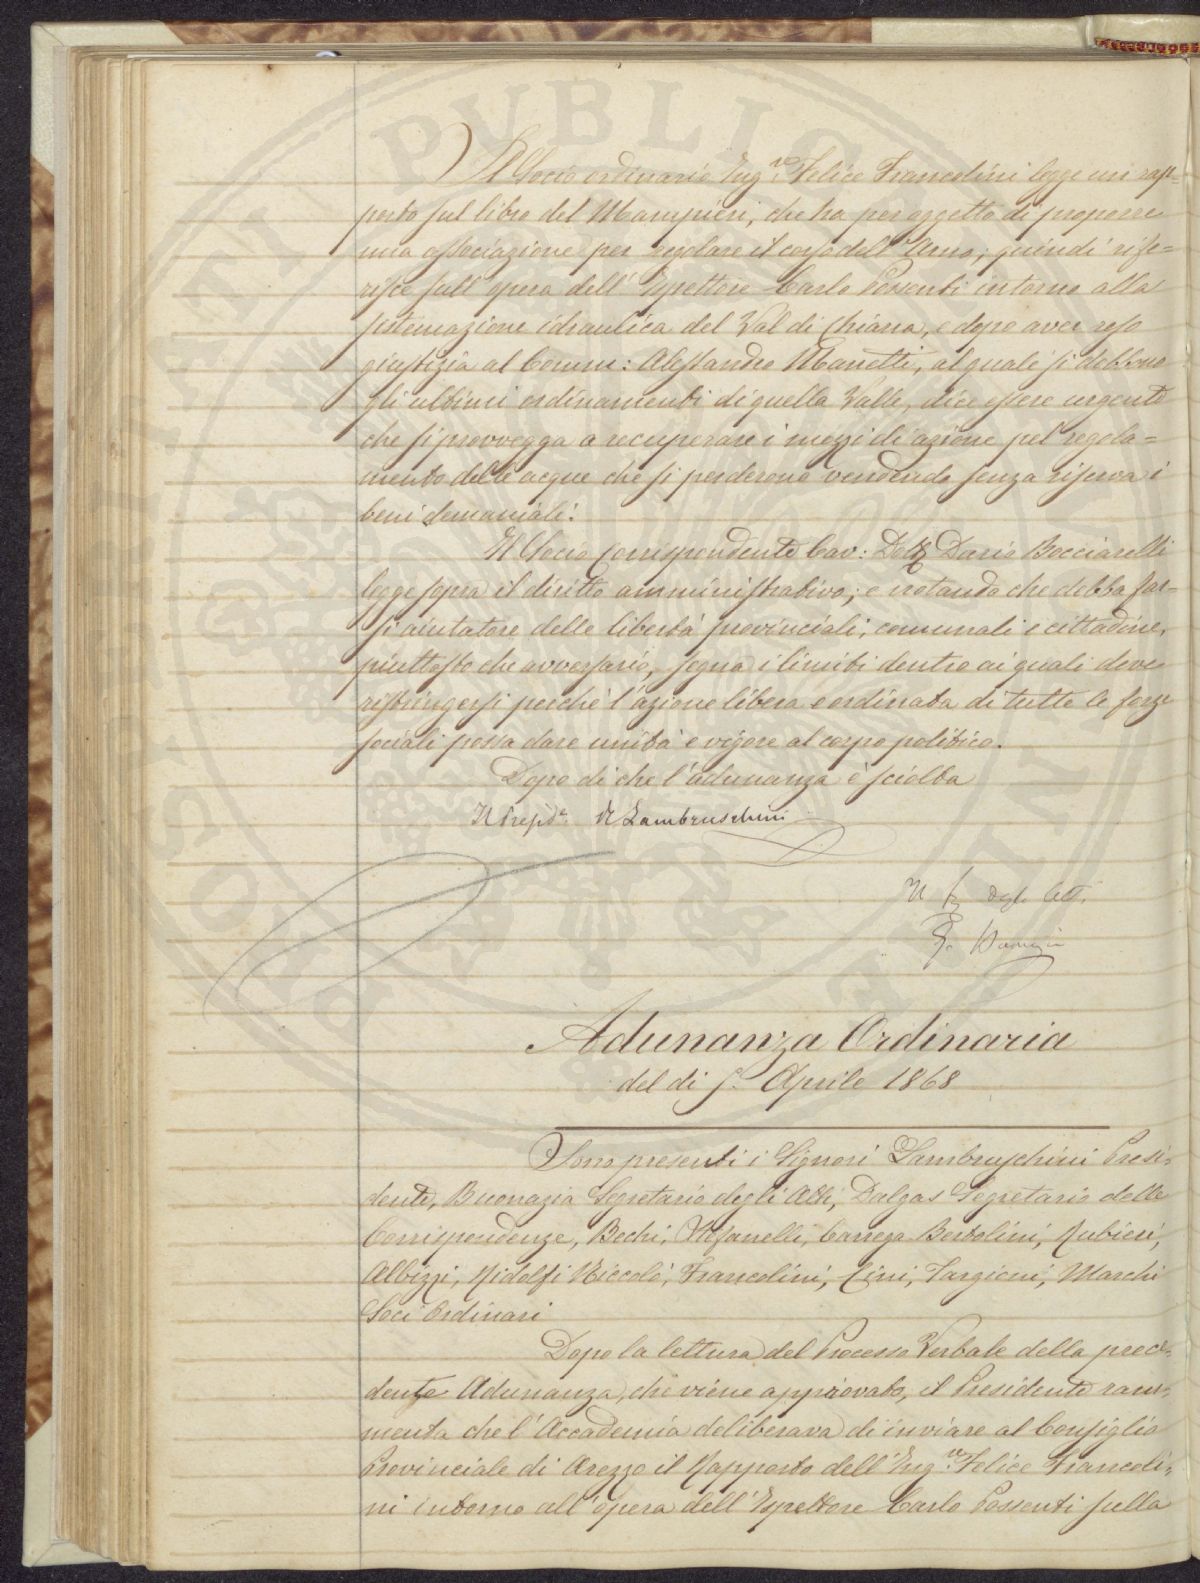 Il Socio ordinario Ing.re Felice Francolini legge un rap=
porto sul libro del Mampieri, che ha per oggetto di proporre
una associazione per regolare il corso dell'Arno; quindi rife=
risce sull'opera dell'Ispettore Carlo Possenti intorno alla
sistemazione idraulica del Val di Chiana, e dopo aver reso
giustizia al Comm: Alessandro Manetti, al quale si debbono
gli ultimi ordinamenti di quella Valle, dice essere urgente
che si provvegga a recuperare i mezzi di azione pel regola=
mento delle acque che si perderono vendendo senza riserva i
beni demaniali.
Il Socio Corrispondente Cav: Dott Dario Bocciarelli
legge sopra il diritto amministrativo; e notando che debba far=
si aiutatore delle libertà provinciali, comunali e cittadine,
piuttosto che avversario, segna i limiti dentro ai quali deve
ristringersi perchè l'azione libera e ordinata di tutte le forze
sociali possa dare unità e vigore al corpo politico.
Dopo di che l'adunanza è sciolta
Il Presid.e R Lambruschini
Il degli Atti.
Adunanza Ordinaria
del di 5. Aprile 1868
Sono presenti i Signori Lambruschini Presi=
dente, Buonazia Segretario degli Atti, Dalgas Segretario delle
Corrispondenze, Bechi, Stefanelli, Carrega Bertolini, Rubieri,
Albizzi, Ridolfi Niccolò, Francolini, Cini, Targioni, Marchi
Soci Ordinari
Dopo la lettura del Processo Verbale della prece=
dente Adunanza, che viene approvato, il Presidente ram=
menta che l'Accademia deliberava di inviare al Consiglio
Provinciale di Arezzo il Rapporto dell'Ing.re Felice Francoli=
ni intorno all'opera dell'Ispettore Carlo Possenti sulla